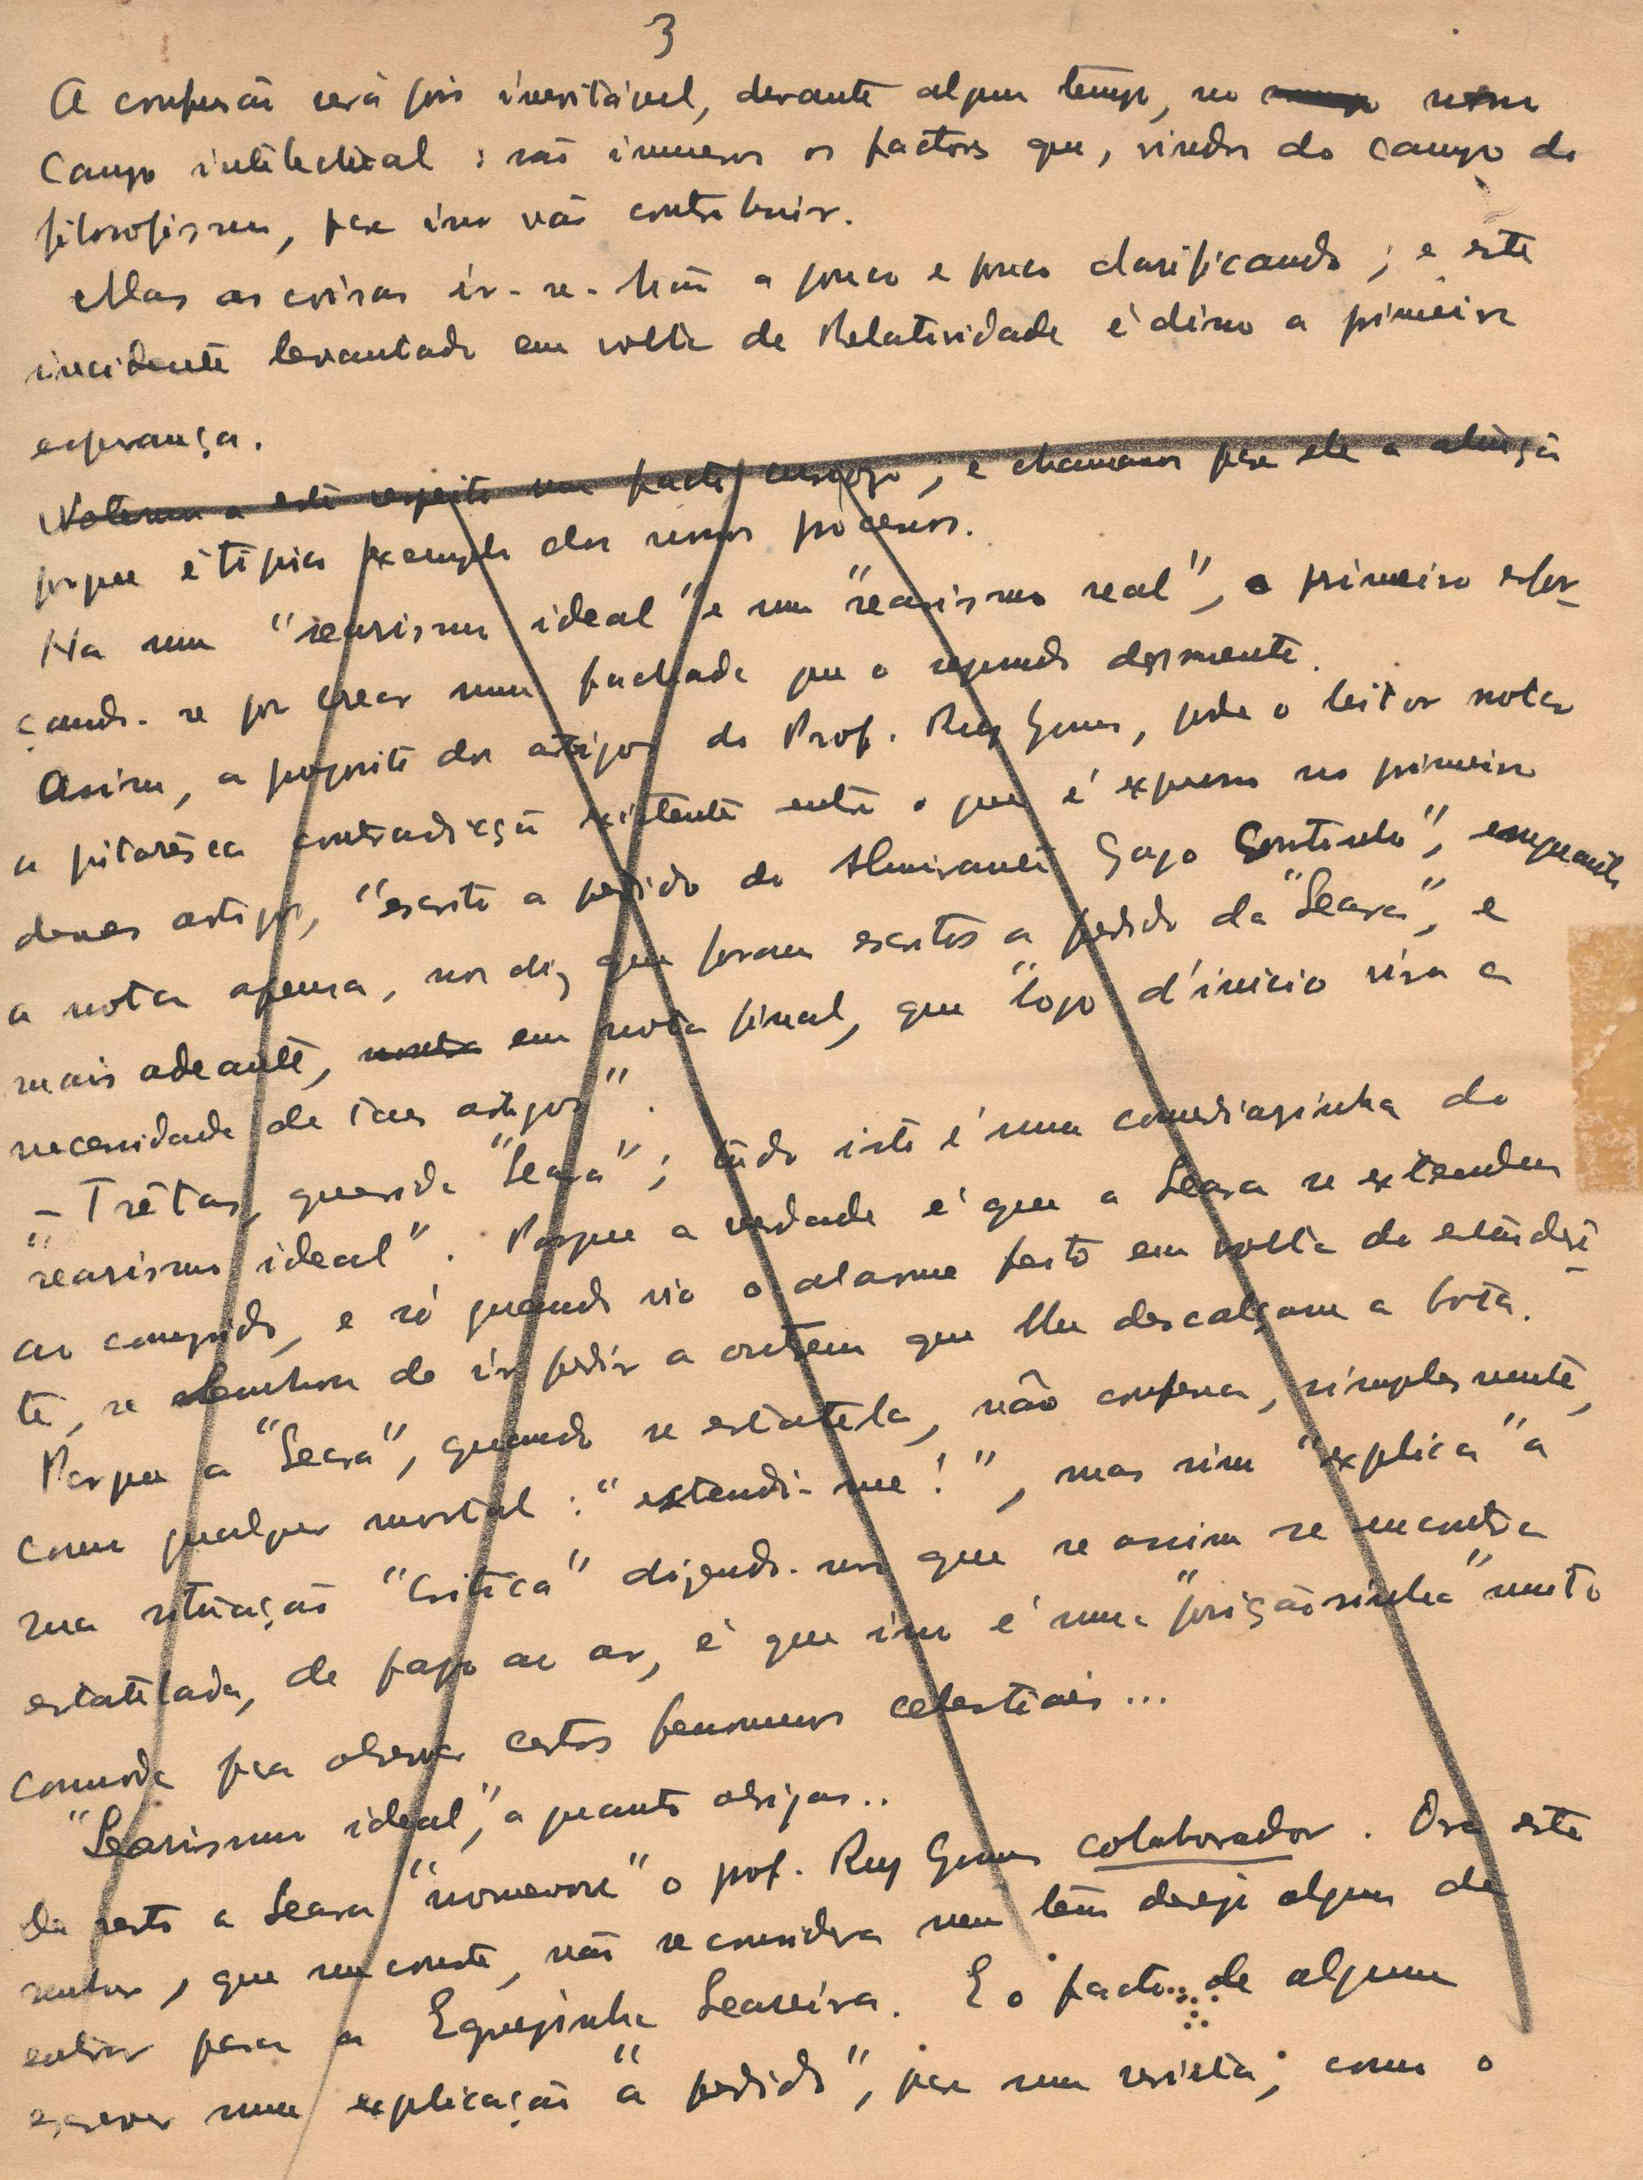 3
A confusão será pois inevitável, durante algum tempo, no nosso
campo intelectual: são imensos os factores que, vindos do campo do
filosofismo, para isso vão contribuir.
Mas as coisas ir-se-hão a pouco e pouco clarificando; e este
incidente levantado em volta da Relatividade é disso a primeira
esperança.
Notemos a este respeito um facto curioso; e chamamos para ele a atenção
porque é típico exemplo dos seus processos.
Ha um "searismo ideal" e um "searismo real", o primeiro esfor-
çando-se por crear uma fachada que o segundo desmente.
Assim, a proposito dos artigos do Prof. Ruy Gomes, pode o leitor notar
a pitorêsca contradicção existente entre o que é expresso no primeiro
desses artigos, "escrito a pedido do Almirante Gago Coutinho", emquanto
a nota apensa, nos diz que foram escritos a pedido da "Seara", e
mais adeante, em nota final, que "logo d'inicio vira a
necessidade de taes artigos".
- Trêtas, querida "Seara"; tudo isto é uma comediasinha do
"searismo ideal". Porque a verdade é que a Seara se extendeu
ao comprido, e só quando viu o alarme feito em volta do estender-
te, se lembrou de ir pedir a outrem que lhe descalçasse a bota.
Porque a "Seara", quando se estatela, não confessa, simplesmente,
como qualquer mortal: "extendi-me!", mas sim "explica" a
sua situação "critica" dizendo-nos que se assim se encontra
estatelada, de papo ao ar, é que isso é uma "posiçãosinha" muito
comoda para observar certos fenomenos celestiais...
"Searismo ideal", a quanto obrigas..
De resto a Seara "nomeou" o prof. Ruy Gomes colaborador. Ora este
senhor, que nos conste, não se considera nem têm desejo algum de
entrar para a Egrejinha Seareira. E o facto de alguem
escrever uma explicação "a pedido", para uma revista, como o